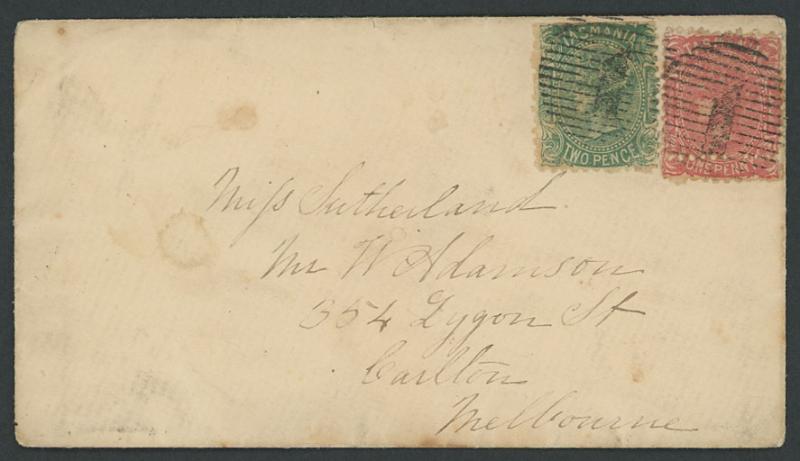 TASMANIA
TWO PENCE
ONE PENNY
Miss Sutherland.
Mr W Adamson
354 Lygon St
Carlton
Melbourne